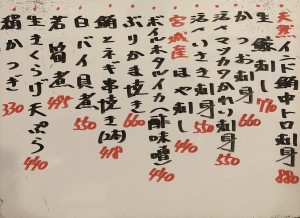 天然インド鮪中トロ刺身 880
生鯨刺し 770
かつお刺身 660
活〆マツカワかれい刺身 660
活〆いさき刺身 550
宮城産ほや刺し 440
ボイルホタルイカ(酢味噌) 440
ぶりかま焼き 660
鮪とネギ串焼き(2本) 418
白バイ貝煮 550
若筍煮 495
生きくらげ天ぷら 440
絹かつぎ 330